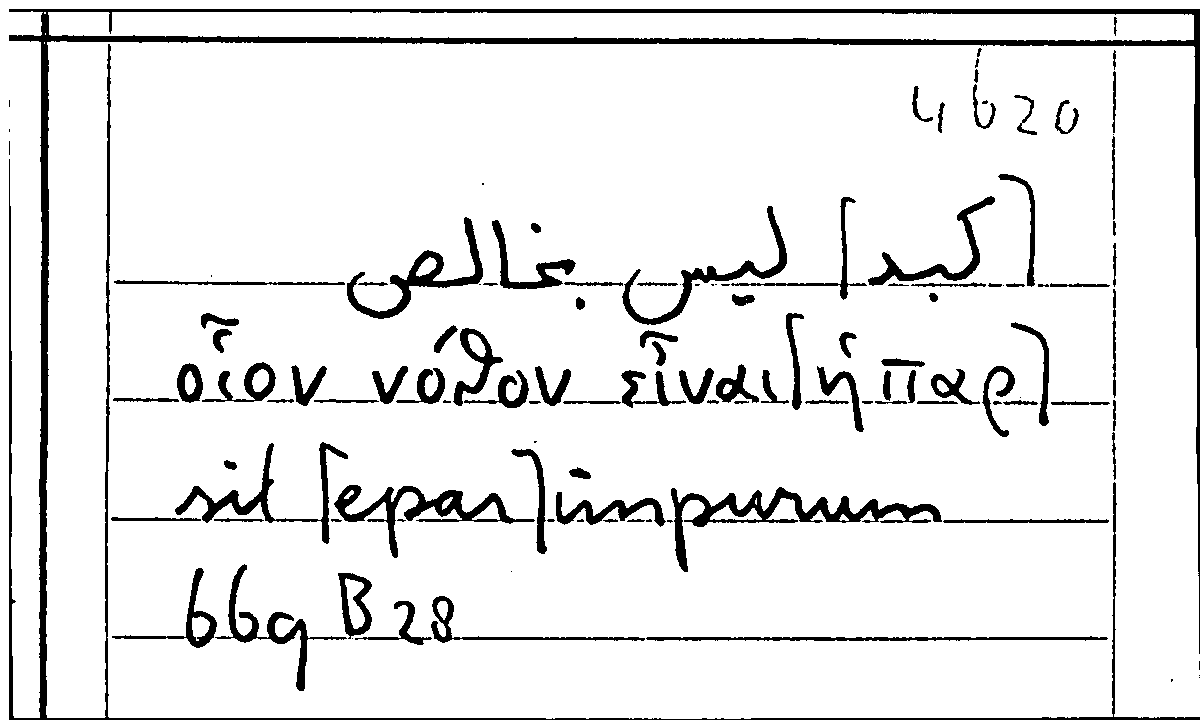 4620
[كبد] ليس بخالص
οἷον νόθον εἶναι [ἡπαρ]
sit [epar] impurum
669 B 28